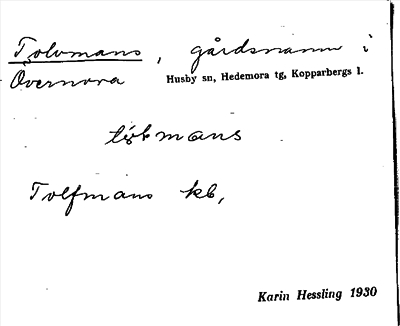 Tolvmans, gårdsnamn i
Övernora Husby sn, Hedemora tg, Kopparbergs l.
Tolfmans kb,
Karin Hessling 1930